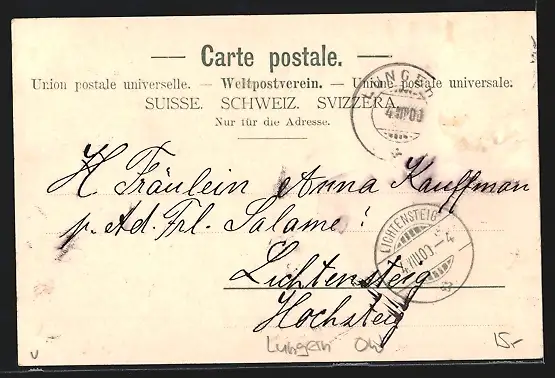 — Carte postale. —
Union postale universelle. — Weltpostverein. — Unione postale universale.
SUISSE. SCHWEIZ. SVIZZERA.
Nur für die Adresse.
LUNGERN
4.VII.00
H Fräulein Anna Kauffman
p. Ad. Frl. Salome!
LICHTENSTEIG
4.VII.00.—4
Lichtensteig
Hochsteig
Lungern OW
15.-
v